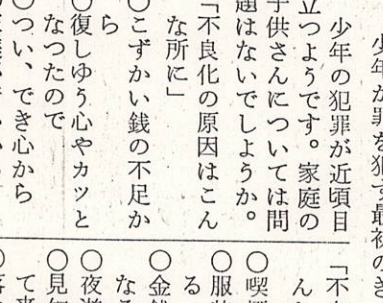 少年が罪を犯す最初のき
少年の犯罪が近頃目
立つようです。家庭の
子供さんについては問
題はないでしようか。
「不良化の原因はこん
な所に」
○こずかい銭の不足か
ら
○復しゆう心やカツと
なつたので
○つい、でき心から
「不
ん
○喫
○服
る
○金銭
な
○夜
○見
て来